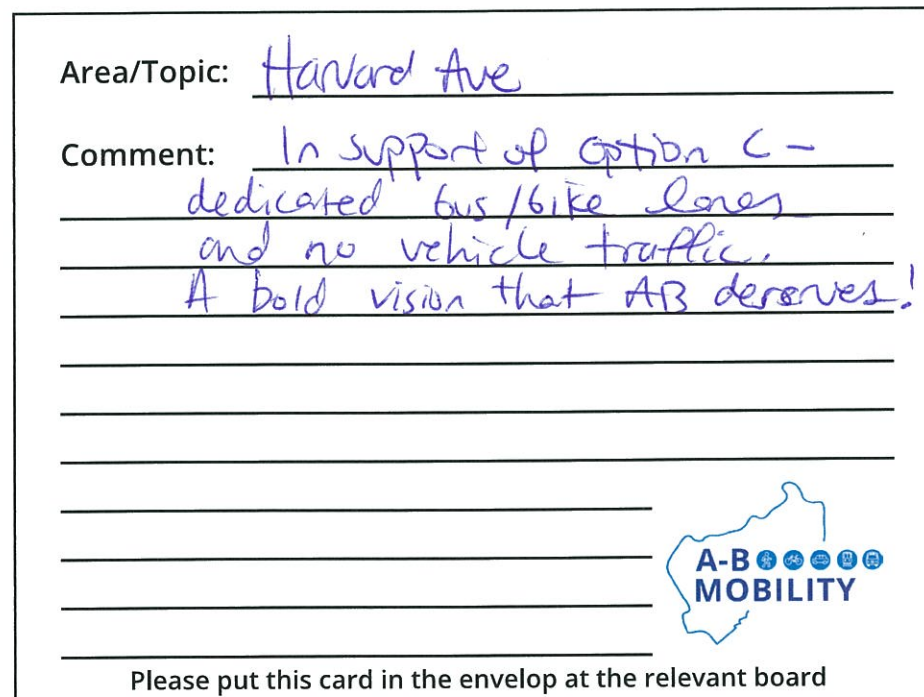 Area/Topic: Harvard Ave
Comment: In support of option C -
dedicated bus/bike lanes
and no vehicle traffic.
A bold vision that AB deserves!
A-B
MOBILITY
Please put this card in the envelop at the relevant board